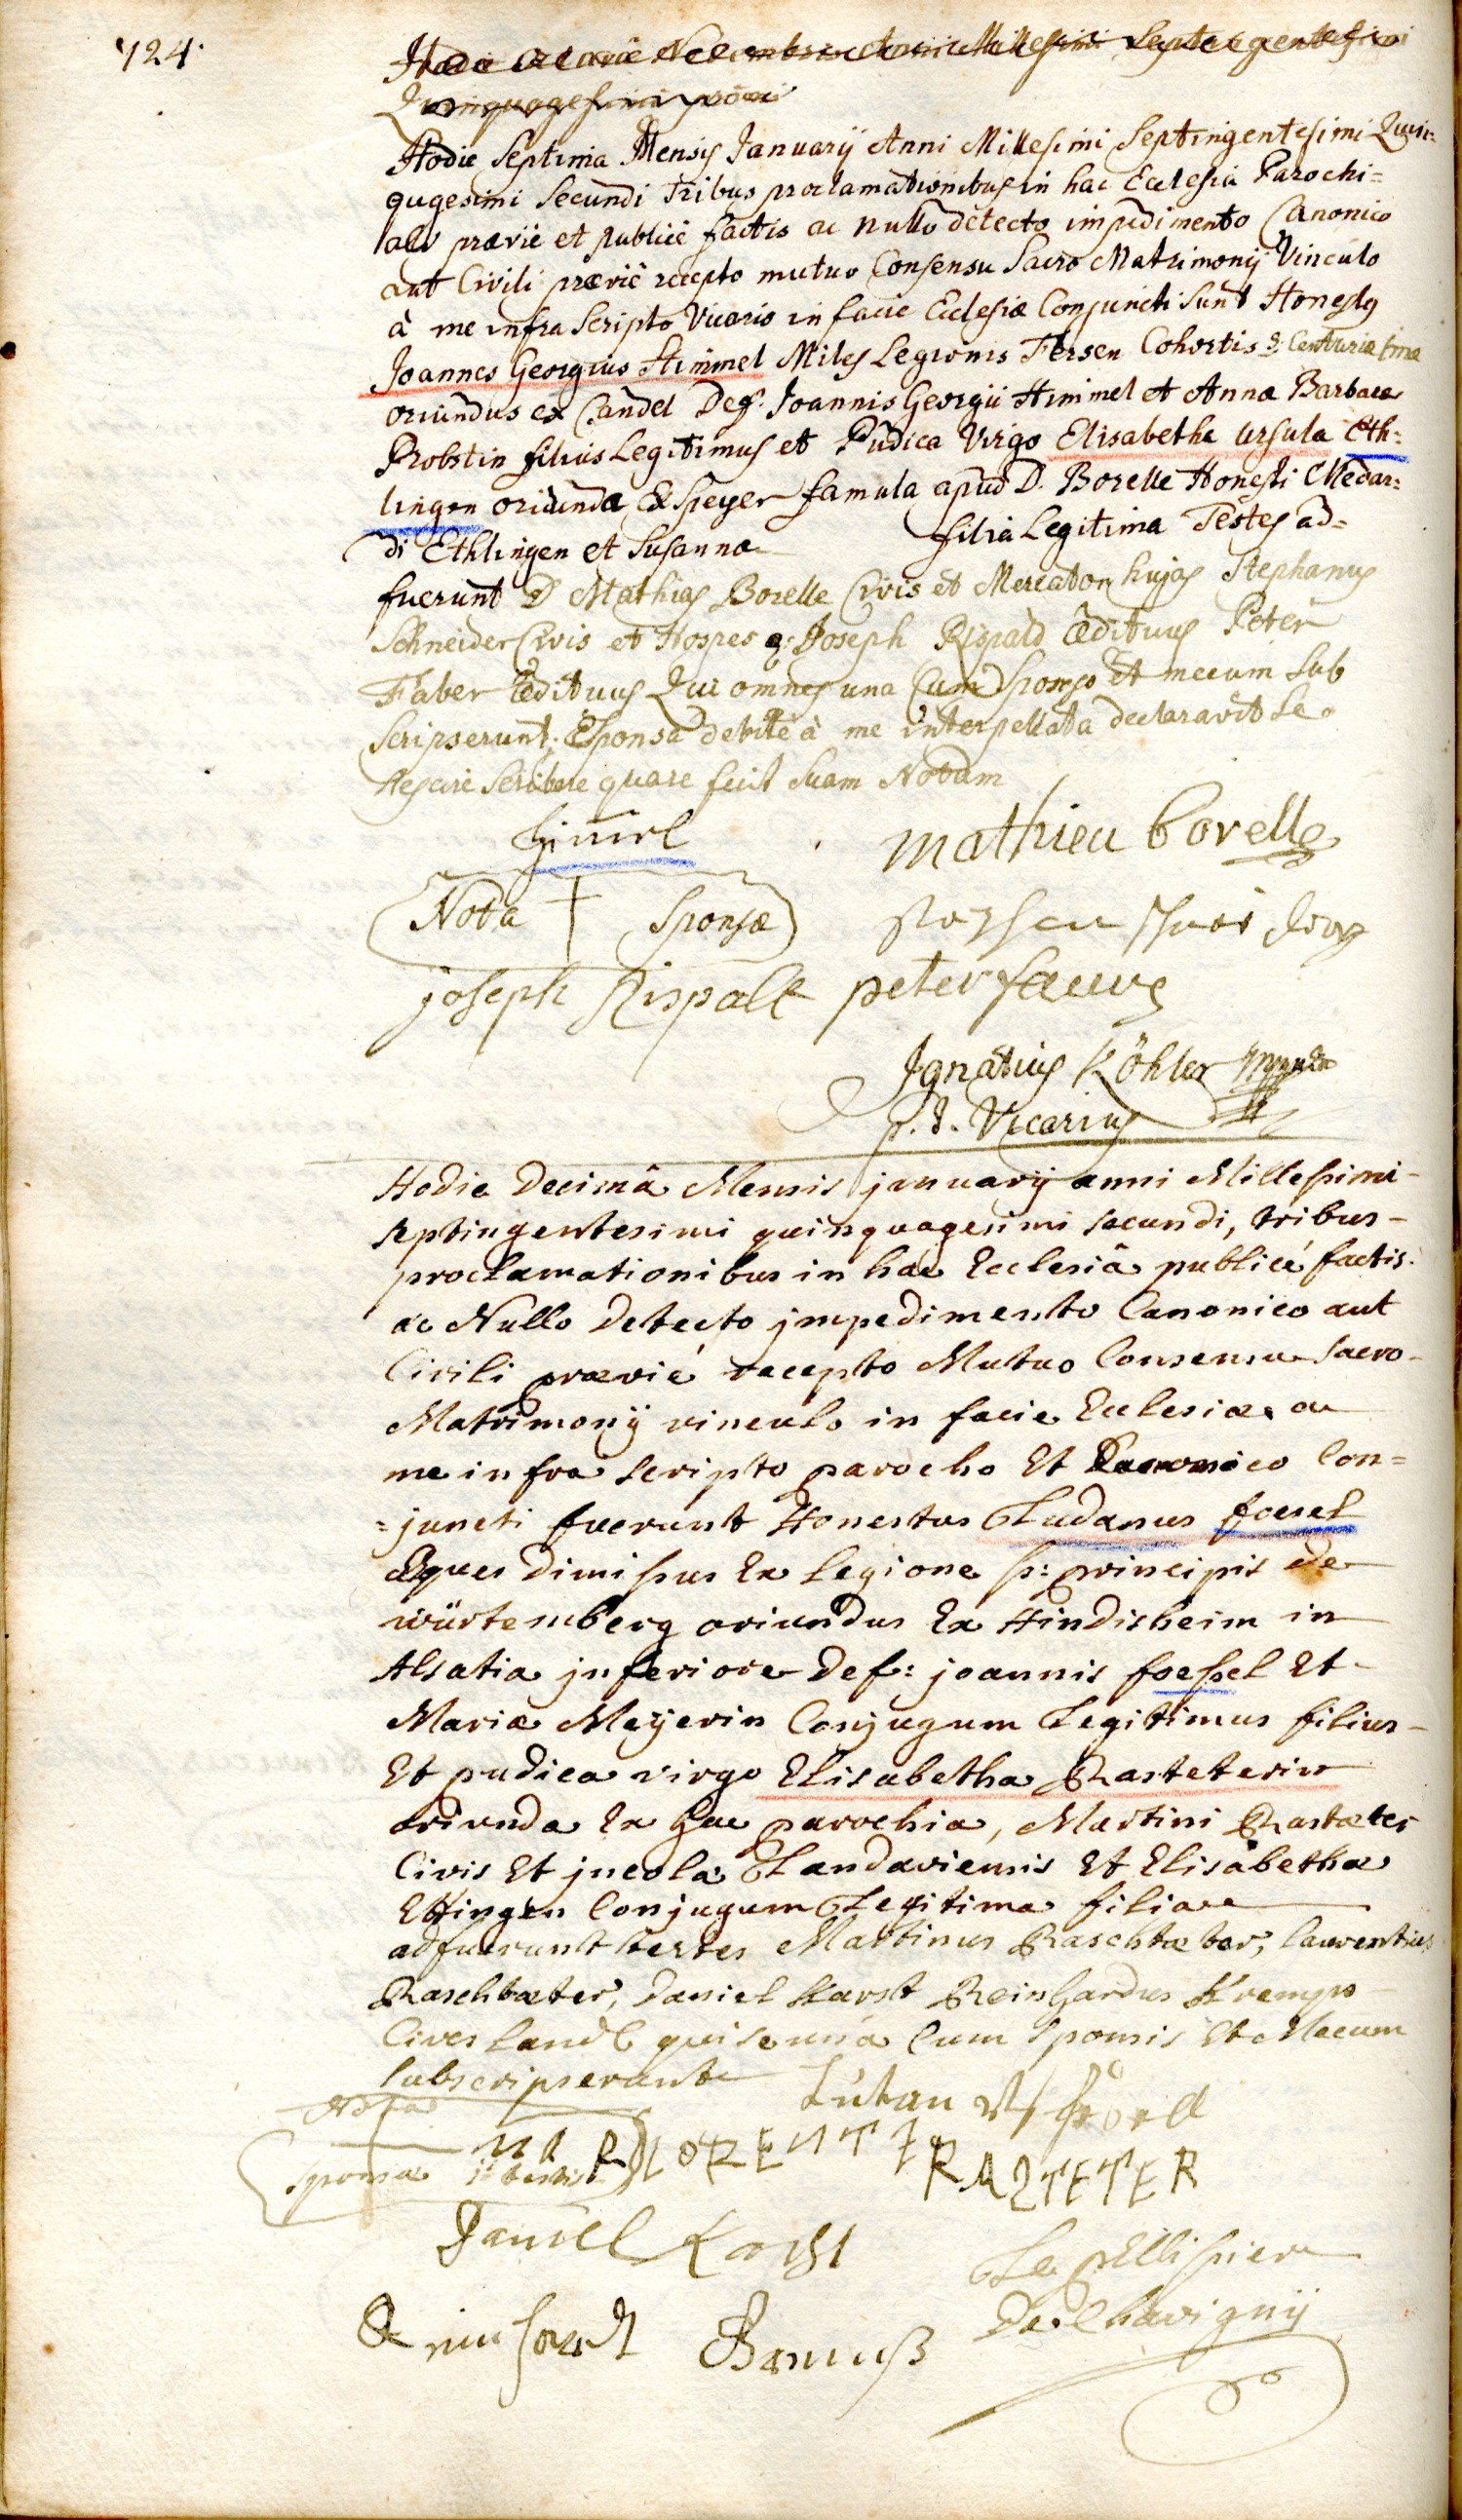 724.
Hodie Septima Mensis Januarij Anni Millesimi Septingentesimi Quin=
qugesimi Secundi Tribus proclamationibus in hac Ecclesia Parochi=
ali prævie et publice factis ac nullo detecto impedimento Canonico
aut Civili prævie recepto mutuo Consensu Sacro Matrimonij Vinculo
à me infra Scripto Vicario in facie Ecclesiæ Conjuncti Sunt Honestus
Joannes Georgius Himmel Miles Legionis Fersen Cohortis Centuriæ
oriundus ex Candel Def. Joannis Georgii Himmel et Annæ Barbaræ
Probstin filius Legitimus et Pudica Virgo Elisabetha Ursula Eth=
lingen oriunda Ex Speyer famula apud D. Borelle Honesti Medar=
di Ethlingen et Susannæ filia Legitima Testes ad=
fuerunt D Mathias Borelle Civis et Mercator hujas Stephanus
Schneider Civis et Hospes Joseph Rispald Ædituus Peter
Faber Ædituus Qui omnes una Cum Sponso et mecum Sub
Scripserunt. Sponsa debite à me interpellata declaravit Se
Nescire Scribere quare fecit Suam Notam
Himel
mathieu borelle
Nota + Sponsæ
joseph Rispalt peter
Ignatius Köhler
p.t. Vicarius
Hodie Decimâ Mensis januarij anni Millessimi
septingentesimi quinquagesimi secundi, tribus
proclamationibus in hac Ecclesiâ publicé factis
ac Nullo detecto jmpedimento Canonico aut
Civili prævié recepto Mutuo Consensu sacro
Matrimonij vinculo in facie Ecclesiæ a
me infra scripto parocho Et Canonico Con=
=juncti fuerunt Honestus Ludanus foesel
Eques dimissus Ex legione s: principis de
würtemberg oriundus Ex Hindisheim in
Alsatia jnferiore def: joannis foessel Et
Mariæ Meyerin Conjugum Legitimus filius
Et pudica virgo Elisabetha Rasteterin
oriunda Ex hac parochia, Martini Rastæter
Civis Et jncola Landaviensis Et Elisabethæ
Ettingen Conjugum Legitima filia
adfuerunt testes Martinus Raschtæter, laurentius
Raschtæter, Daniel Karst Reinhardus Kremps
Cives land qui se una Cum sponsis Et Mecum
subscripserunt
Nota
sponsæ
MR LORENTZ
RASTETER
Daniel Karst
Le pellissier
De Chavignÿ